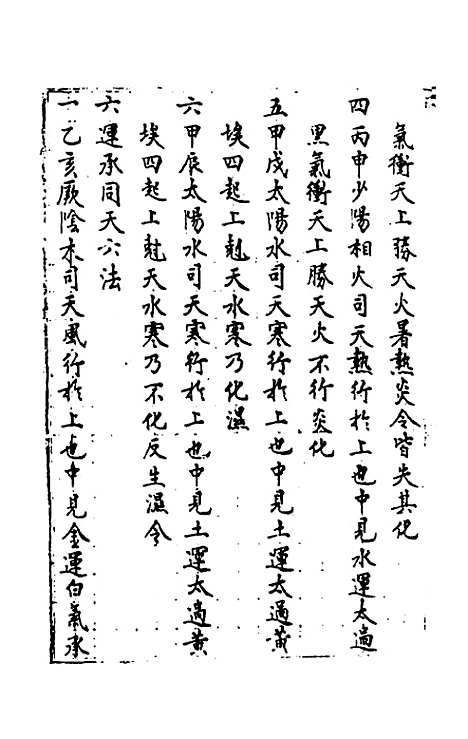 氣衝天上勝天火暑熱炎令皆失其化
四丙申少陽相火司天熱行於上也中見水運太過
黑氣衝天上勝天火不行炎化
五甲戌太陽水司天寒行於上也中見土運太過黄
埃四起上尅天水寒乃化濕
六甲辰太陽水司天寒行於上也中見土運太過黄
埃四起上尅天水寒乃不化反生濕令
六運承同天六法
一乙亥厥陰木司天風行於上也中見金運白氣承